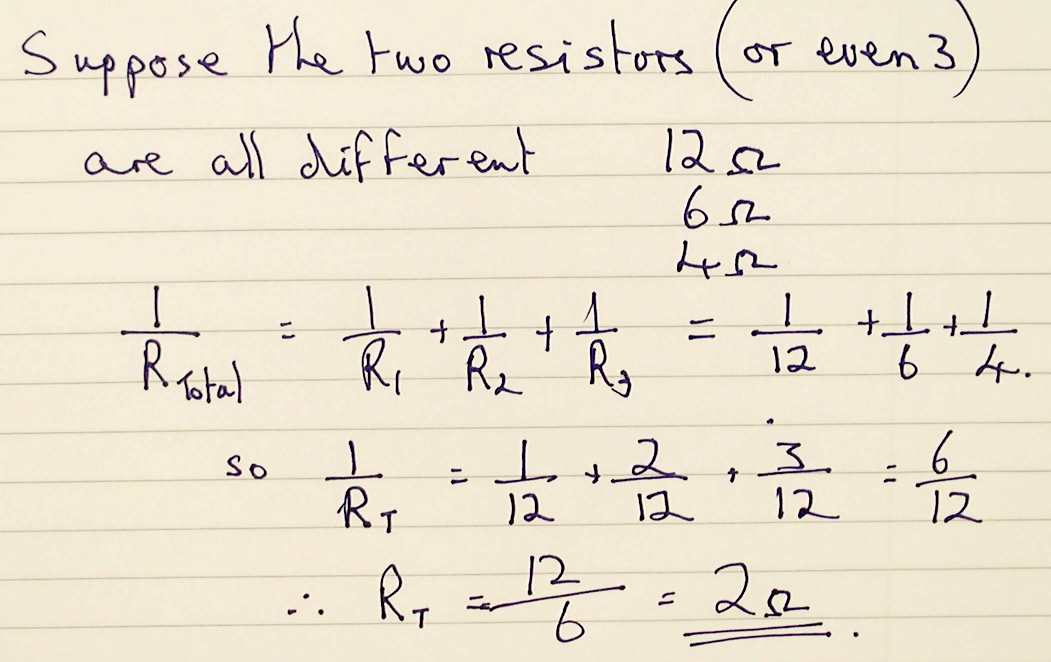 Suppose the two resistors (or even 3)
are all different 12Ω
6Ω
4Ω
1/R Total = 1/R₁ + 1/R₂ + 1/R₃ = 1/12 + 1/6 + 1/4.
so 1/R_T = 1/12 + 2/12 + 3/12 = 6/12
∴ R_T = 12/6 = 2Ω.